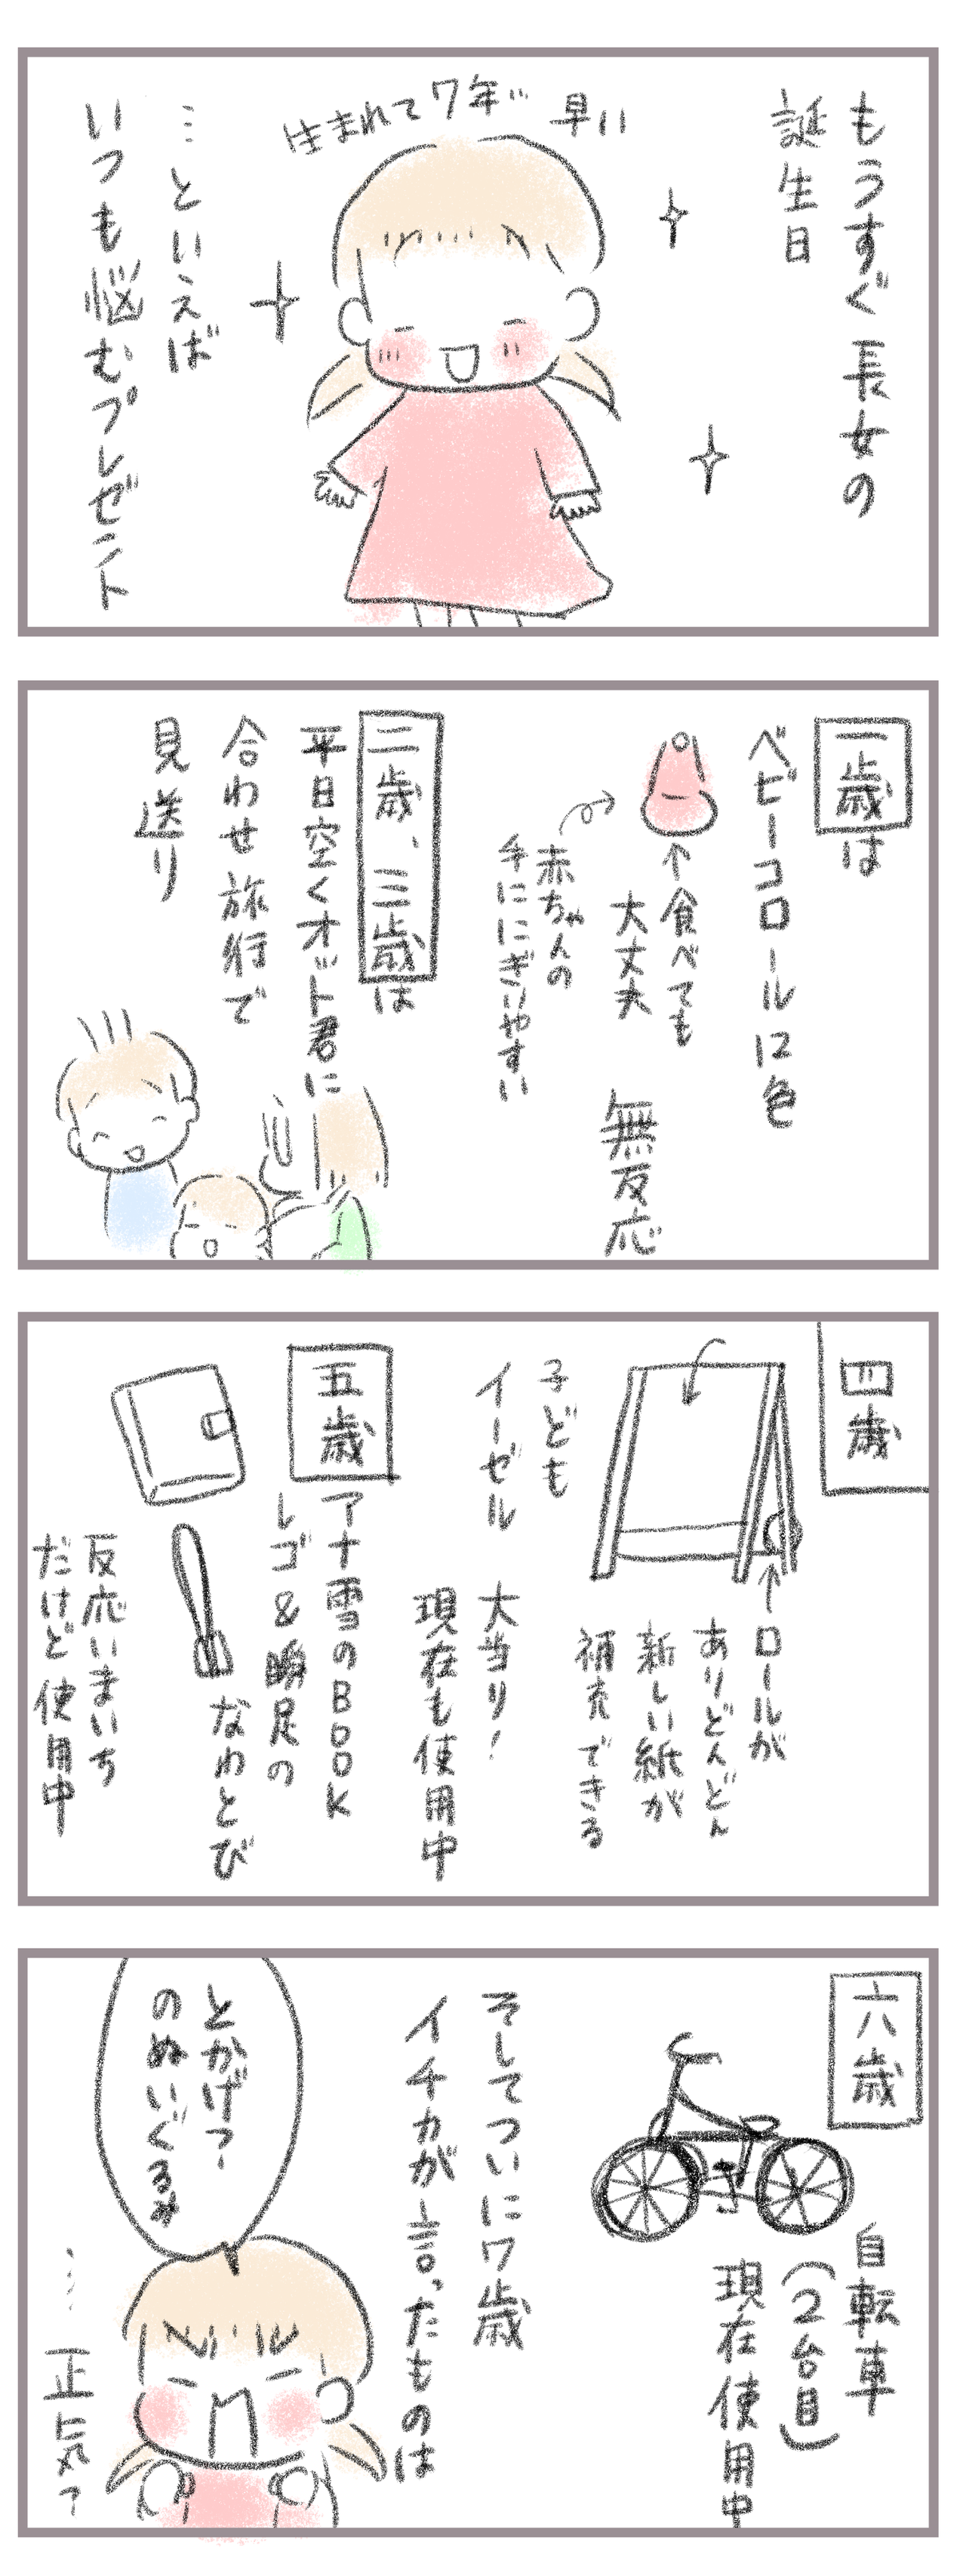 もうすぐ長女の
誕生日
早い
生まれて7年…
…といえば
いつも悩むプレゼント
一歳は
ベビーコロール12色
↑食べても
大丈夫
赤ちゃんの
手ににぎりやすい
無反応
二歳、三歳は
平日空くオット君に
合わせ旅行で
見送り
四歳
↑ロールが
ありどんどん
新しい紙が
補充できる
子ども
イーゼル
大当り!
現在も使用中
五歳
アナ雪のBOOK
レゴ&瞬足の
なわとび
反応いまいち
だけど使用中
六歳
自転車
(2台目)
現在使用中
そしてついに7歳
イチカが言ったものは
とかげっ
のぬいぐるみ
…正気?